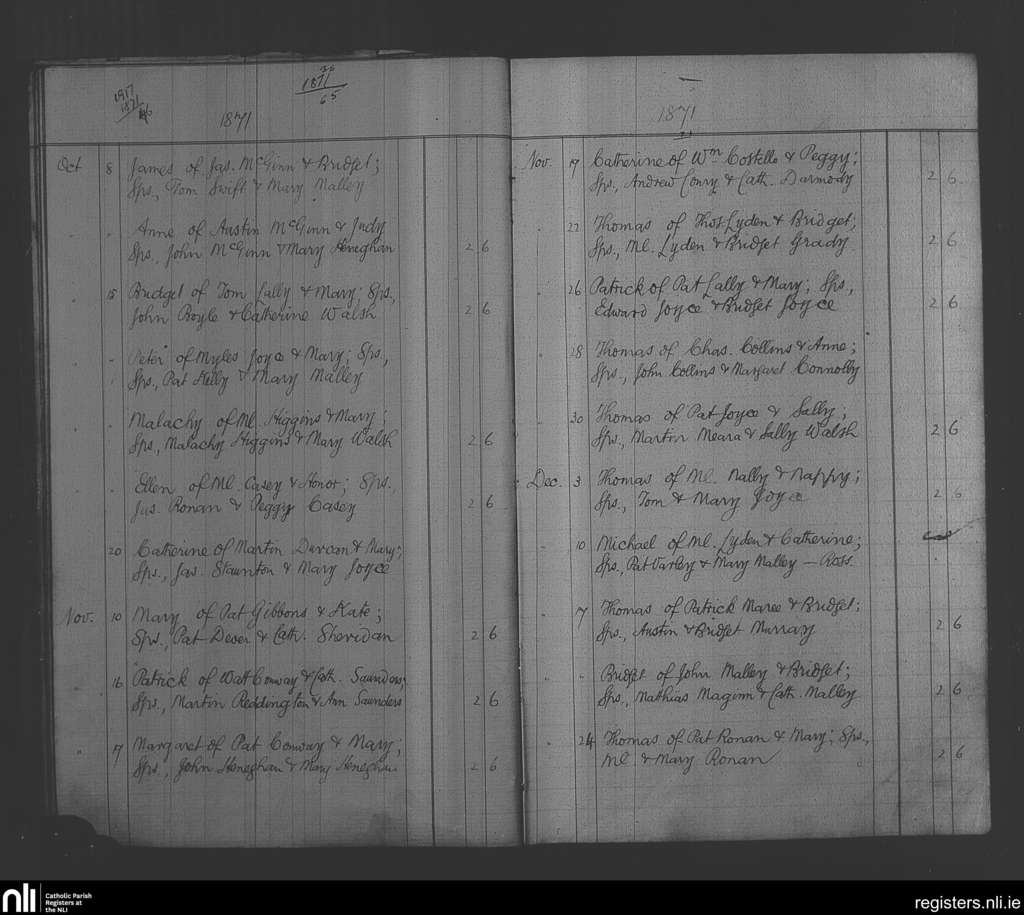 1917
1871
46
1871
36
65
1871
Oct 8 James of Jas. McGinn & Bridget;
Sps., Tom Swift & Mary Malley
" " Anne of Austin McGinn & Judy
Sps., John McGinn & Mary Heneghan 2 6
" 15 Bridget of Tom Lally & Mary; Sps.,
John Boyle & Catherine Walsh 2 6
" " Peter of Myles Joyce & Mary; Sps.,
Sps., Pat Kelly & Mary Malley
" " Malachy of Ml. Higgins & Mary;
Sps., Malachy Higgins & Mary Walsh 2 6
" " Ellen of Ml. Casey & Honor; Sps.,
Jas. Ronan & Peggy Casey 2 6
" 20 Catherine of Martin Durcan & Mary;
Sps., Jas. Staunton & Mary Joyce
Nov. 10 Mary of Pat Gibbons & Kate;
Sps., Pat & Cath. Sheridan 2 6
" 16 Patrick of Watt Conway & Cath. Saunders;
Sps., Martin Reddington & Ann Saunders 2 6
" 17 Margaret of Pat Conway & Mary;
Sps., John Heneghan & Mary Heneghan 2 6
1871
Nov. 17 Catherine of Wm Costello & Peggy;
Sps., Andrew Conry & Cath. Darmody 2 6
" 22 Thomas of Thos. Lyden & Bridget;
Sps., Ml. Lyden & Bridget Grady 2 6
" 26 Patrick of Pat Lally & Mary; Sps.,
Edward Joyce & Bridget Joyce 2 6
" 28 Thomas of Chas. Collins & Anne;
Sps., John Collins & Margaret Connolly
" 30 Thomas of Pat Joyce & Sally;
Sps., Martin Meara & Sally Walsh 2 6
Dec. 3 Thomas of Ml. Nally & Nappy;
Sps., Tom & Mary Joyce 2 6
" 10 Michael of Ml. Lyden & Catherine;
Sps., Pat Varley & Mary Malley — Ross.
" 17 Thomas of Patrick Maree & Bridget;
Sps., Austin & Bridget Murray 2 6
" " Bridget of John Malley & Bridget;
Sps., Mathias Maginn & Cath. Malley 2 6
" 24 Thomas of Pat Ronan & Mary; Sps.,
Ml. & Mary Ronan 2 6
nli
Catholic Parish
Registers at
the NLI
registers.nli.ie